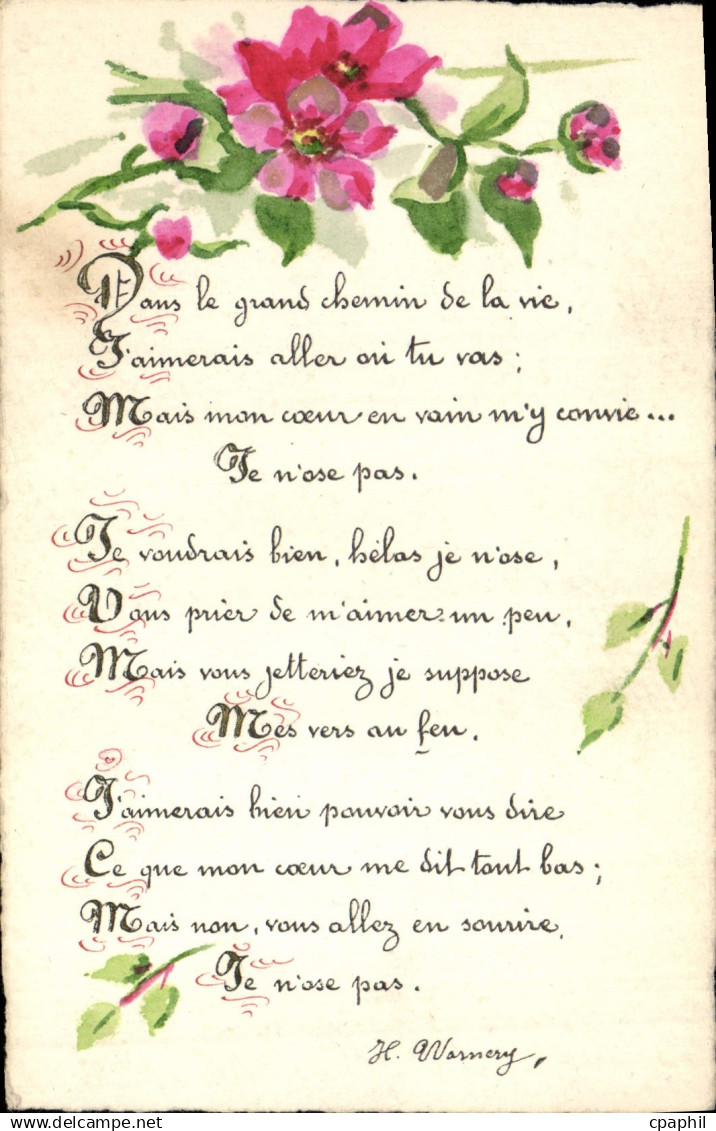 Dans le grand chemin de la vie,
J'aimerais aller où tu vas ;
Mais mon cœur en vain m'y convie...
Je n'ose pas.
Je voudrais bien, hélas je n'ose,
Vous prier de m'aimer un peu,
Mais vous jetteriez je suppose
Mes vers au feu.
J'aimerais bien pouvoir vous dire
Ce que mon cœur me dit tout bas ;
Mais non, vous allez en sourire,
Je n'ose pas.
H. Warnery,
cpaphil